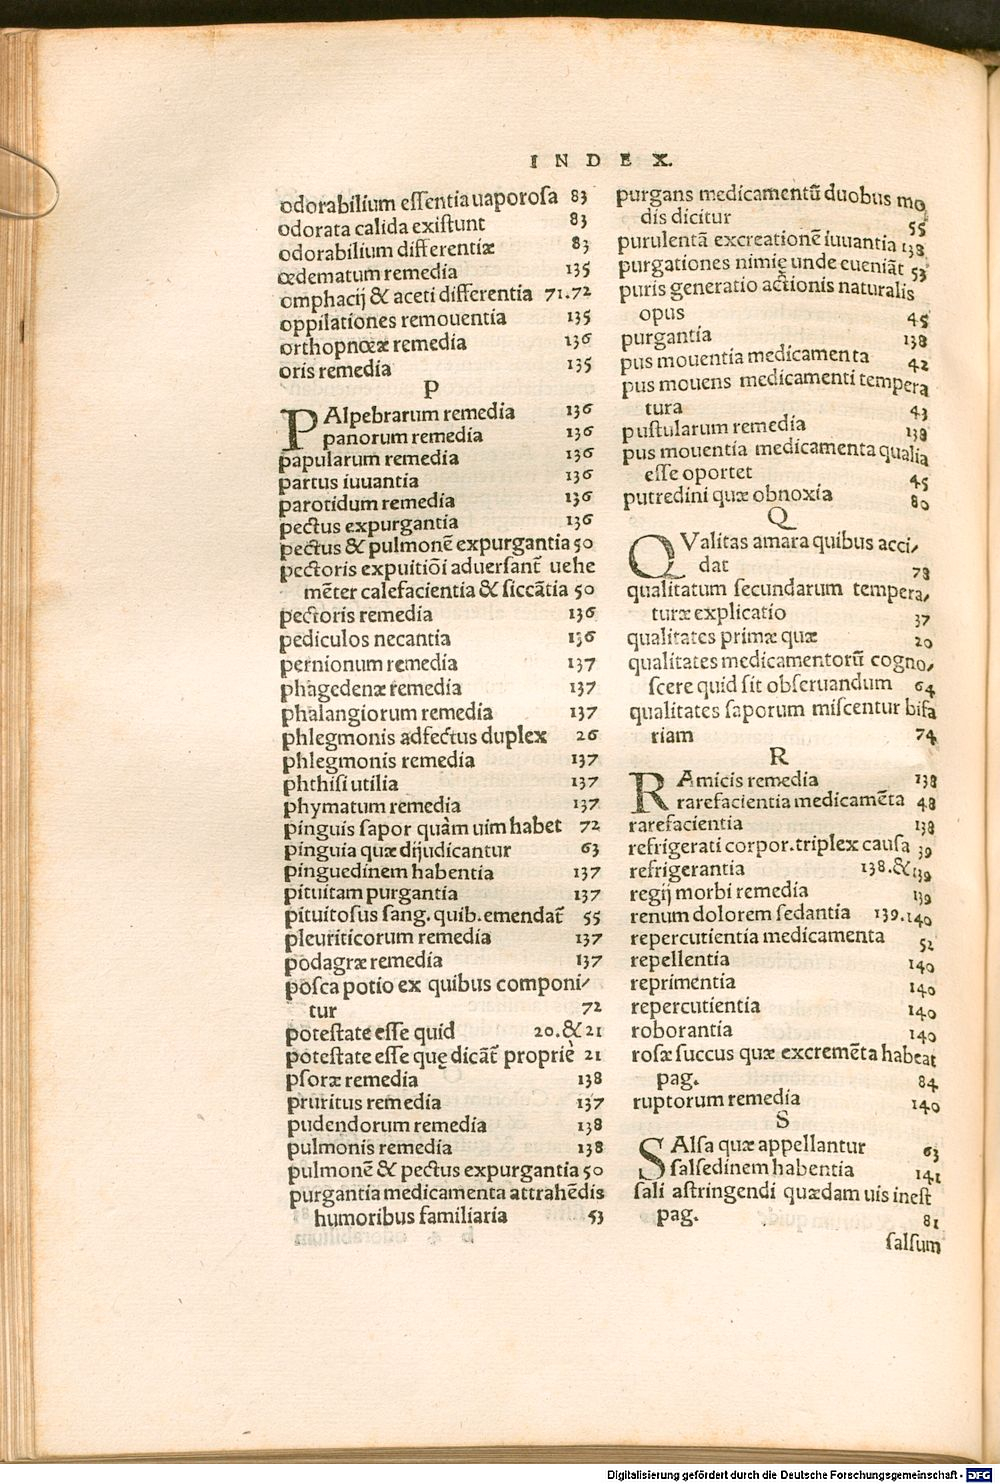 INDEX.
odorabilium essentia uaporosa 83
odorata calida existunt 83
odorabilium differentiæ 83
œdematum remedia 135
omphacij & aceti differentia 71.72
oppilationes remouentia 135
orthopnœæ remedia 136
oris remedia 135
P
PAlpebrarum remedia 136
panorum remedia 136
papularum remedia 136
partus iuuantia 136
parotidum remedia 136
pectus expurgantia 136
pectus & pulmonē expurgantia 50
pectoris expuitiōi aduersant̄ uehe
mēter calefacientia & siccātia 50
pectoris remedia 136
pediculos necantia 136
pernionum remedia 137
phagedenæ remedia 137
phalangiorum remedia 137
phlegmonis adfectus duplex 26
phlegmonis remedia 137
phthisi utilia 137
phymatum remedia 137
pinguis sapor quàm uim habet 72
pinguia quæ dijudicantur 63
pinguedinem habentia 137
pituitam purgantia 137
pituitosus sang. quib. emendat̄ 55
pleuriticorum remedia 137
podagræ remedia 137
posca potio ex quibus componi⸗
tur 72
potestate esse quid 20.& 21
potestate esse quę dicāt̄ propriè 21
psoræ remedia 138
pruritus remedia 137
pudendorum remedia 138
pulmonis remedia 138
pulmonē & pectus expurgantia 50
purgantia medicamenta attrahēdis
humoribus familiaria 53
purgans medicamentū duobus mo
dis dicitur 55
purulentā excreationē iuuantia 138
purgationes nimię unde eueniāt 53
puris generatio actionis naturalis
opus 45
purgantia 138
pus mouentia medicamenta 42
pus mouens medicamenti tempera
tura 43
pustularum remedia 138
pus mouentia medicamenta qualia
esse oportet 45
putredini quæ obnoxia 80
Q
QValitas amara quibus acci⸗
dat 78
qualitatum secundarum tempera⸗
turæ explicatio 37
qualitates primæ quæ 20
qualitates medicamentorū cogno⸗
scere quid sit obseruandum 64
qualitates saporum miscentur bifa
riam 74
R
RAmicis remedia 138
rarefacientia medicamēta 48
rarefacientia 138
refrigerati corpor. triplex causa 39
refrigerantia 138.& 139
regij morbi remedia 139
renum dolorem sedantia 139.140
repercutientia medicamenta 52
repellentia 140
reprimentia 140
repercutientia 140
roborantia 140
rosæ succus quæ excremēta habeat
pag. 84
ruptorum remedia 140
S
SAlsa quæ appellantur 63
salsedinem habentia 141
sali astringendi quædam uis inest
pag. 81
salsum
Digitalisierung gefördert durch die Deutsche Forschungsgemeinschaft - DFG